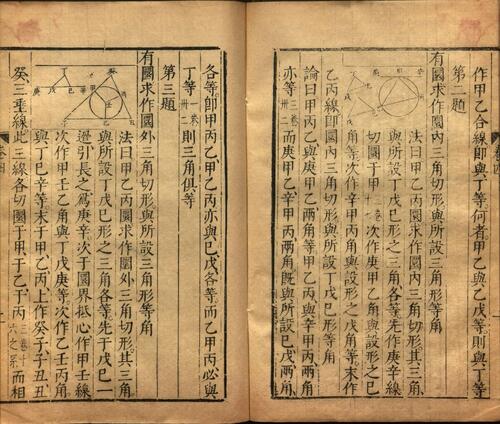 作甲乙合線即與丁等何者甲乙與戊等則與丁等
第二題
有圜求作圜内三角切形與所設三角形等角
法曰甲乙丙圜求作圜内三角切形其三角
與所設丁戊己形之三角各等先作庚辛線
切圜于甲 次作庚甲乙角與設形之己
角等次作辛甲丙角與設形之戊角等末作
乙丙線即圜内三角切形與所設丁戊己形等角
論曰甲丙乙與庚甲乙兩角等甲乙丙與辛甲丙兩角
亦等 三卷卅二 而庚甲乙辛甲丙兩角既與所設己戊兩角
各等即甲丙乙甲乙丙亦與己戊各等而乙甲丙必與
丁等 一卷卅二 則三角俱等
第三題
有圜求作圜外三角切形與所設三角形等角
法曰甲乙丙圜求作圜外三角切形其三角
與所設丁戊己形之三角各等先于戊己一
邊引長之為庚辛次于圜界抵心作甲壬線
次作甲壬乙角與丁戊庚等次作乙壬丙角
與丁己辛等末于甲乙丙上作癸子子丑丑
癸三垂線此三線各切圜于甲于乙于丙 三卷十六之系 而相